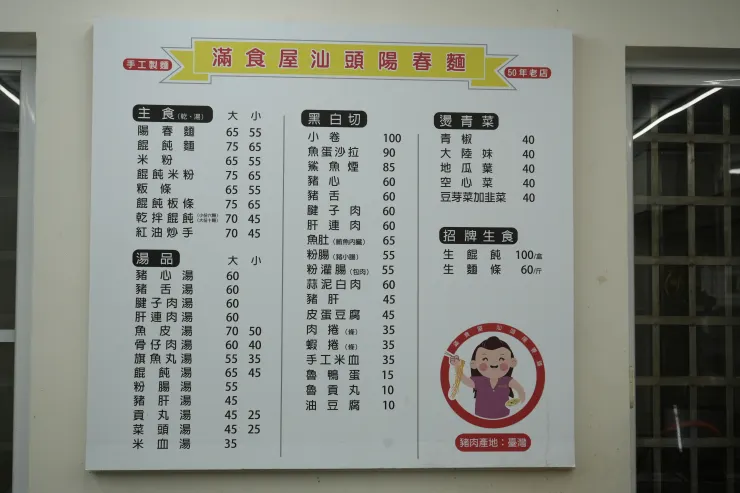 手工製麵
滿食屋汕頭陽春麵
50年老店
主食(乾、湯) 大 小
陽春麵 65 55
餛飩麵 75 65
米粉 65 55
餛飩米粉 75 65
粄條 65 55
餛飩板條 75 65
乾拌餛飩 70 45
紅油炒手 70 45
湯品 大 小
豬心湯 60
豬舌湯 60
腱子肉湯 60
肝連肉湯 60
魚皮湯 70 50
骨仔肉湯 60 40
旗魚丸湯 55 35
餛飩湯 65 45
粉腸湯 55
豬肝湯 45
貢丸湯 45 25
菜頭湯 45 25
米血湯 35
黑白切
小卷 100
魚蛋沙拉 90
鯊魚煙 85
豬心 60
豬舌 60
腱子肉 60
肝連肉 60
魚肚(鯊魚內臟) 65
粉腸(豬小腸) 55
粉灌腸(包肉) 55
蒜泥白肉 60
豬肝 45
皮蛋豆腐 45
肉捲(條) 35
蝦捲(條) 35
手工米血 35
魯鴨蛋 15
魯貢丸 10
油豆腐 10
燙青菜
青椒 40
大陸妹 40
地瓜葉 40
空心菜 40
豆芽菜加韭菜 40
招牌生食
生餛飩 100/盒
生麵條 60/斤
滿食屋 汕頭陽春麵
豬肉產地：臺灣